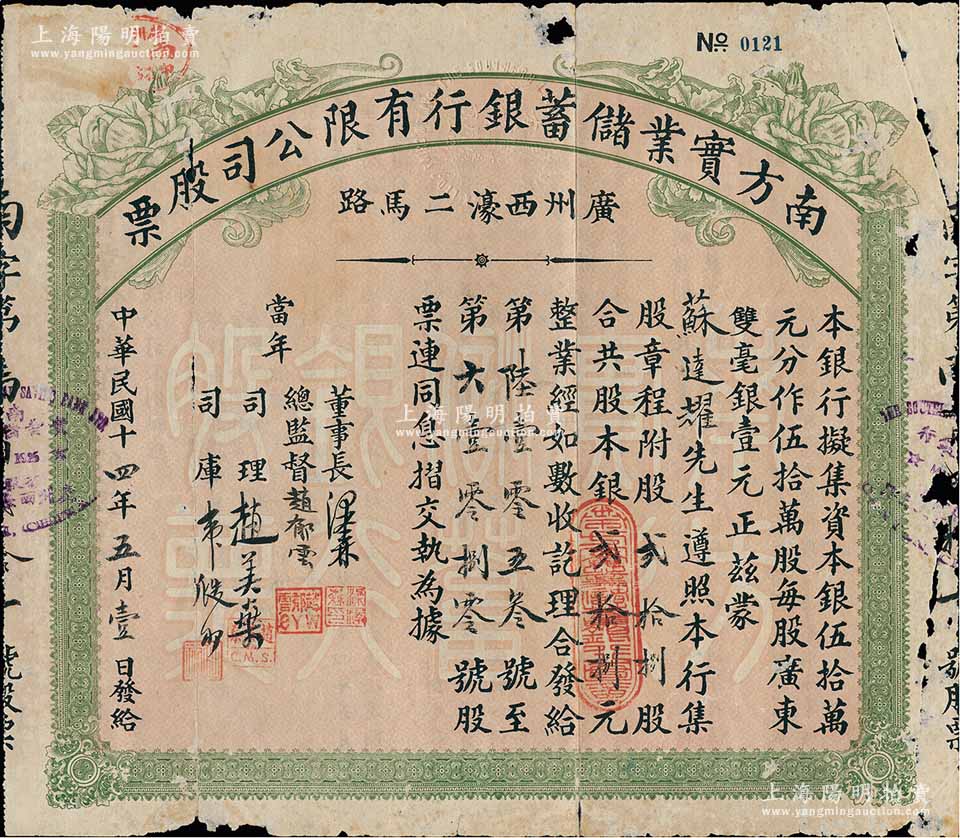 上海陽明拍賣
www.yangmingauction.com
上海陽明拍賣
www.yangmingauction.com
№ 0121
南方實業儲蓄銀行有限公司股票
廣州西濠二馬路
本銀行擬集資本銀伍拾萬
元分作伍拾萬股每股廣東
雙毫銀壹元正茲蒙
蘇達耀先生遵照本行集
股章程附股弍拾捌股
合共股本銀弍拾捌元
整業經如數收訖理合發給
第陸壹零五叁號至
第六壹零捌零號股
票連同息摺交執為據
當年
董事長
總監督趙郁雲
司理趙美
司庫
中華民國十四年五月壹日發給
上海陽明拍賣
www.yangmingauction.com
C.M.S.
1925
號股票
上海陽明拍賣
www.yangmingauction.com